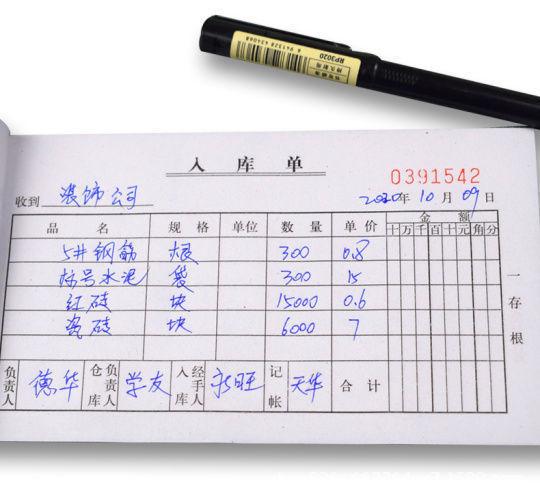 6 941328 434068
RP3020
入库单
0391542
收到 装饰公司 2020年10月09日
品名 规格 单位 数量 单价 金额
十万千百十元角分
5井钢筋 根 300 0.8
标号水泥 袋 300 15
红砖 块 15000 0.6
瓷砖 块 6000 7
负责人 德华 仓库负责人 学友 入库经手人 记帐 天华 合计
一存根